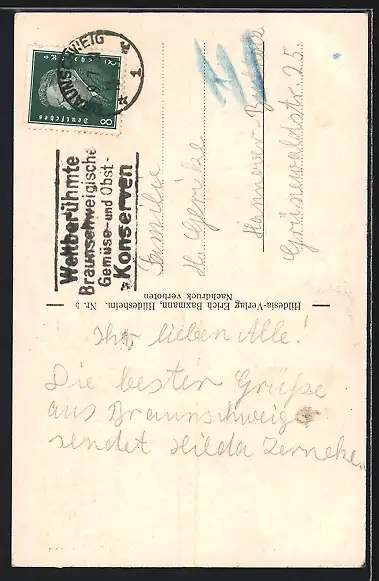 BRAUNSCHWEIG
1
8
Deutsches
Weltberühmte
Braunschweigische
Gemüse- und Obst-
Konserven
Familie
H. Gericke
Hannover-
Grünewaldstr. 25.
Hildesia-Verlag Erich Baxmann, Hildesheim. Nr. 5
Nachdruck verboten
Ihr lieben Alle!
Die besten Grüße
aus Braunschweig
sendet Hilda Zerneke.